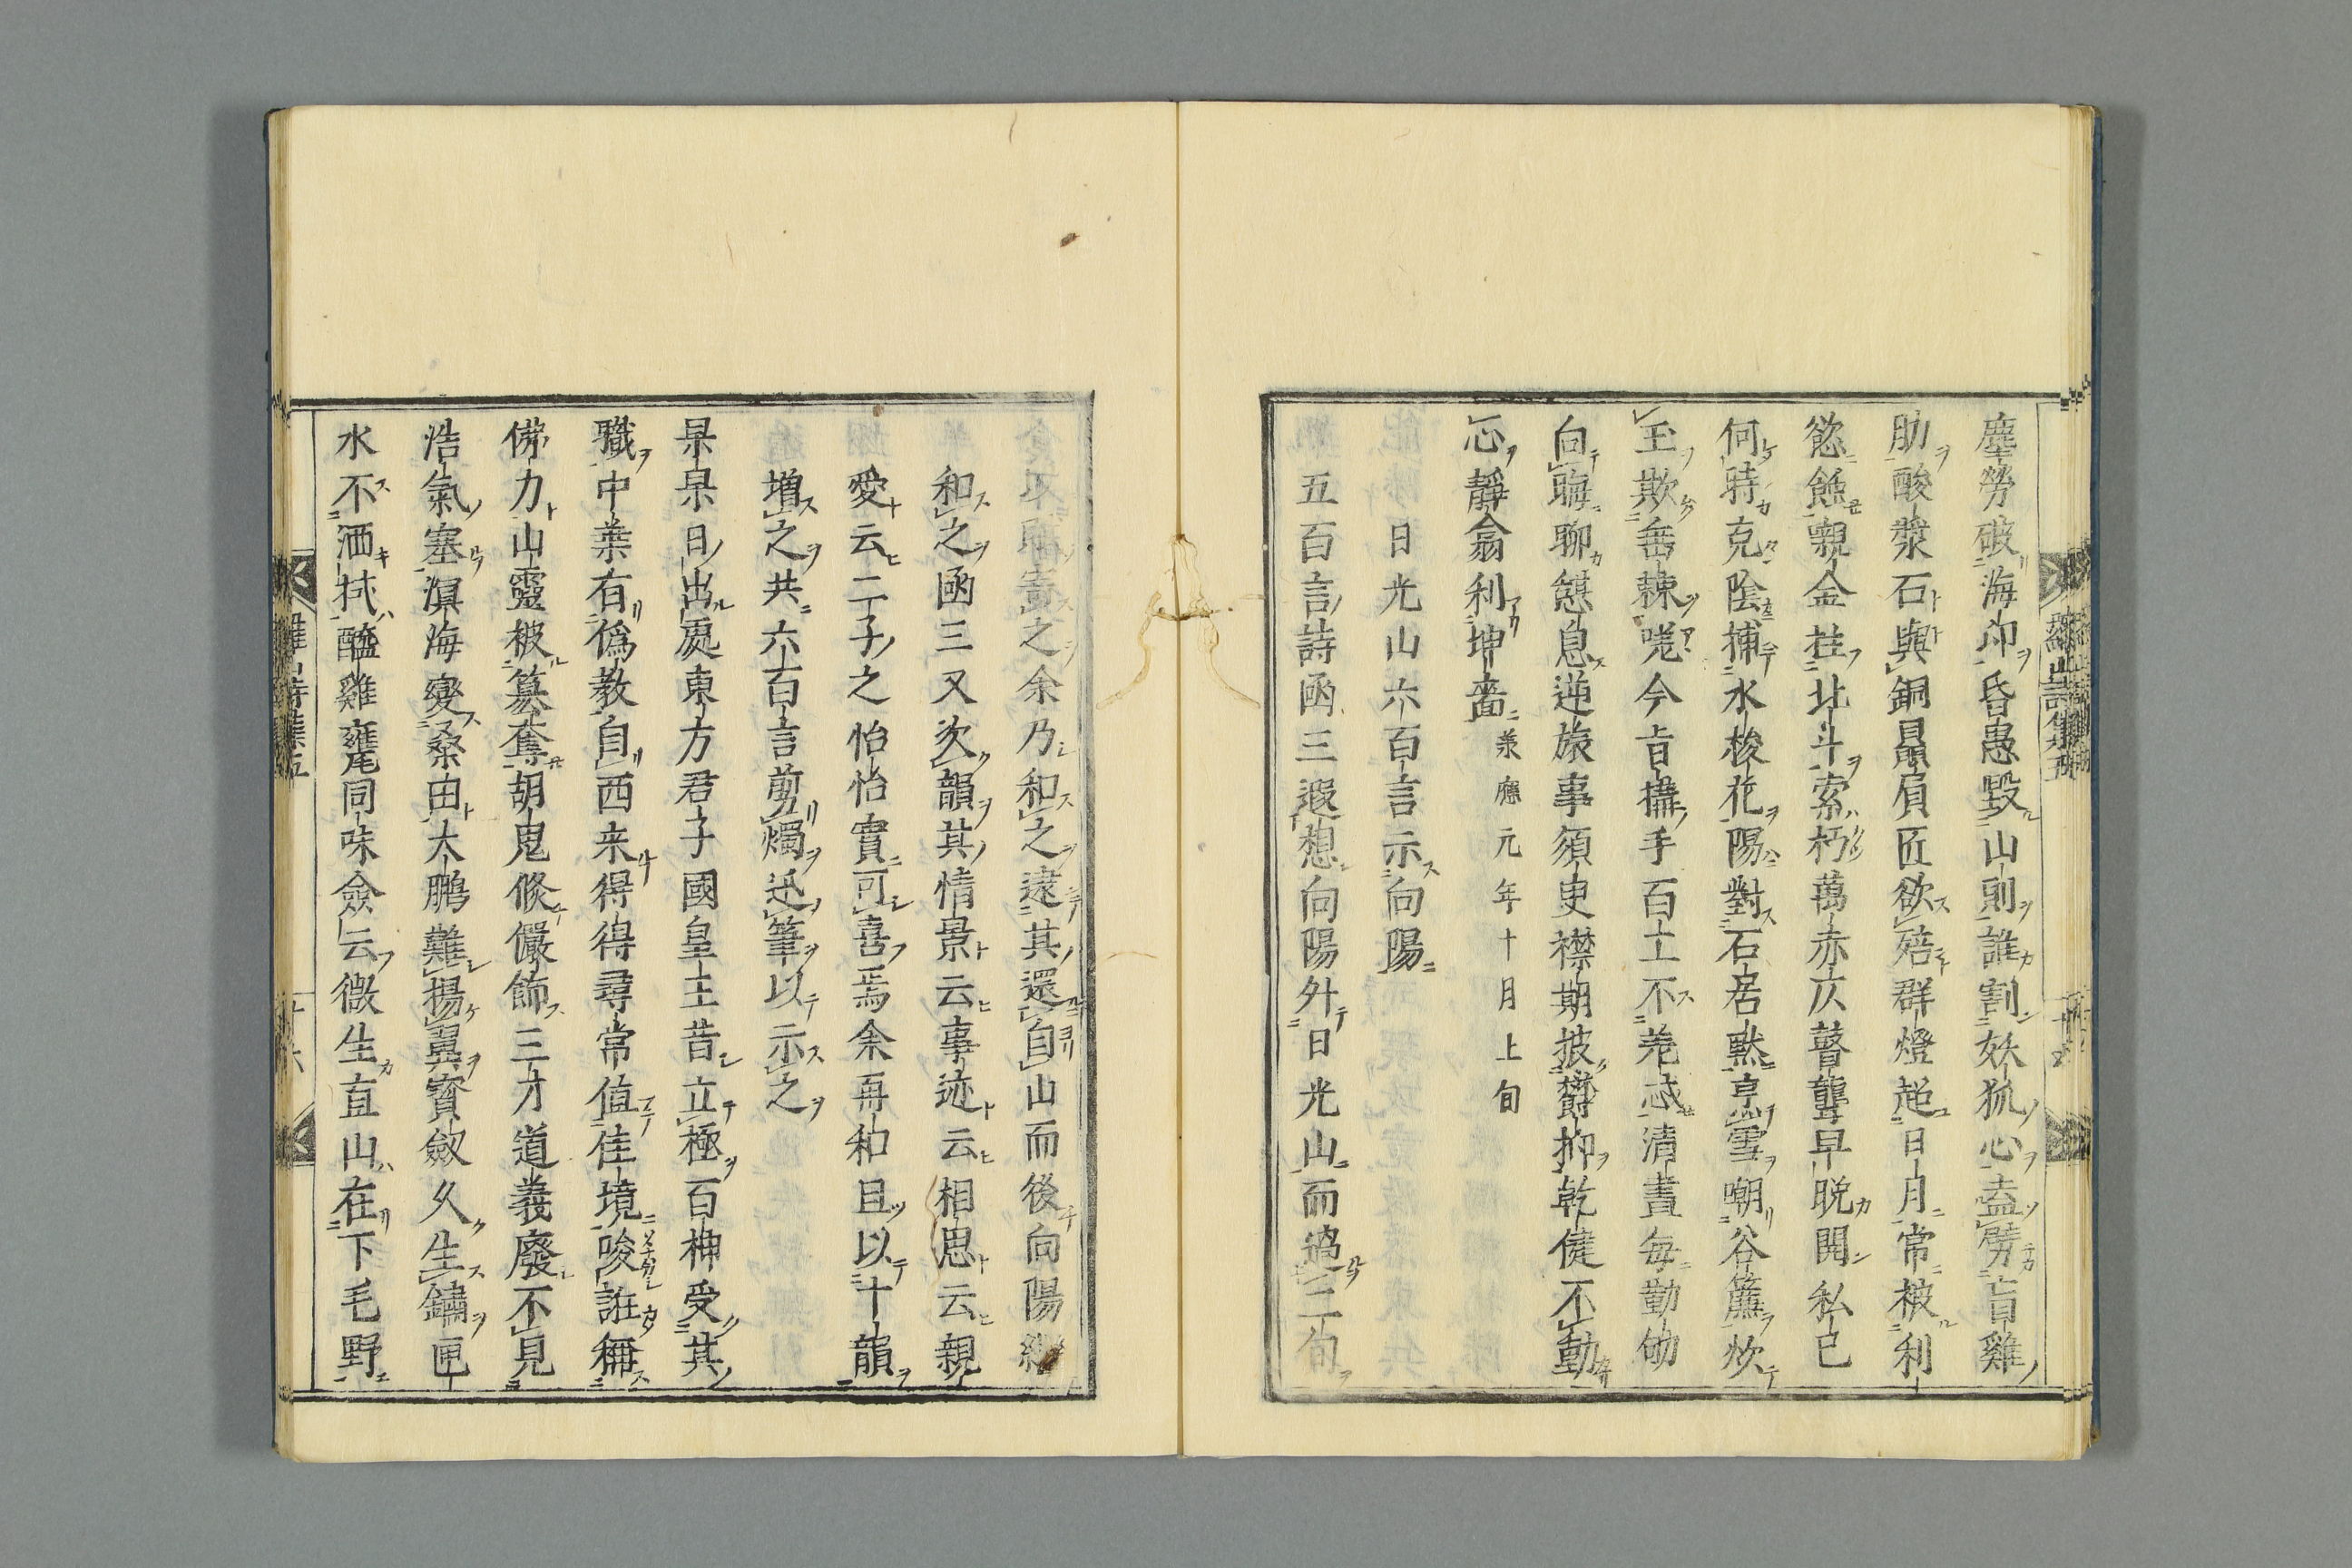 塵勞破海印昏愚毀山則誰割妖狐心盍劈盲雞
肋酸漿石與銅贔屓匠欲碚群燈超日月常被利
慾餘親金拄北斗索朽萬赤仄瞽聾早脱開私已
何特克陰捕水梭花陽對石居默烹雪嘲谷簾炊
玉欺岳棘嘥今旨攜手百土不羌惑清晝每勤劬
向晦聊憩息逆旅事須臾襟期披欝抑乾健不動
心靜翕利坤嗇 承應元年十月上旬
日光山六百言示向陽
五百言詩函三遐想向陽外日光山而過二旬
之余乃和之遠其還自山而後向陽
和之函三又次韻其情景云事迹云相思云親
愛云二子之怡怡實可喜焉余再和且以十韻
増之共六百言剪燭迅筆以示之
杲杲日出處東方君子國皇王昔立極百神受其
職中葉有僞教自西来得得尋常值佳境唆誑稱
佛力山靈被簒奪胡鬼倐儼飾三才道義廢不見
浩氣塞溟海變桑田大鵬難揚翼寶劔久生鏽匣
水不洒拭醯雞甕同味僉云微生直山在下毛野
羅山詩集五